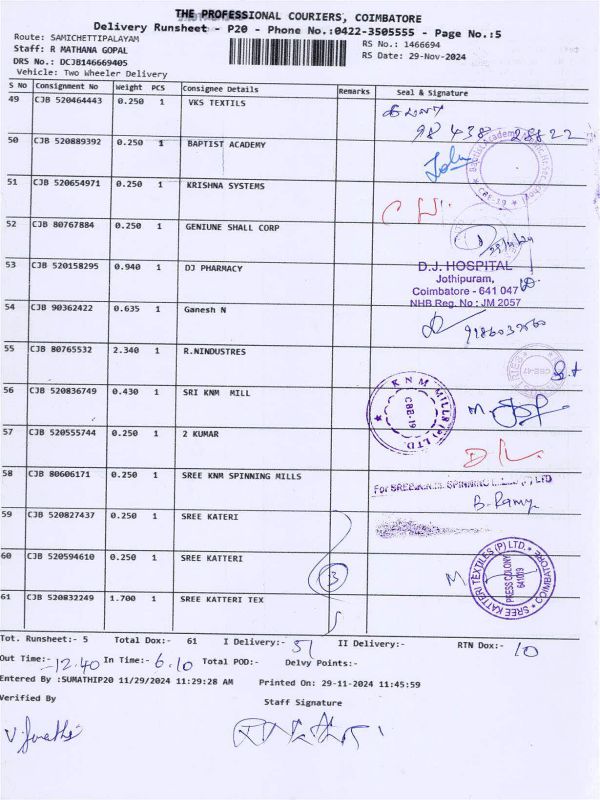 THE PROFESSIONAL COURIERS, COIMBATORE
Delivery Runsheet - P20 - Phone No.:0422-3505555 - Page No.:5
Route: SAMICHETTIPALAYAM
RS No.: 1466694
Staff: R MATHANA GOPAL
RS Date: 29-Nov-2024
DRS No.: DCJB146669405
Vehicle: Two Wheeler Delivery
S No Consignment No Weight PCS Consignee Details Remarks Seal & Signature
49 CJB 520464443 0.250 1 VKS TEXTILS
98 438 28822
50 CJB 520889392 0.250 1 BAPTIST ACADEMY
John
51 CJB 520654971 0.250 1 KRISHNA SYSTEMS
52 CJB 80767884 0.250 1 GENIUNE SHALL CORP
29/11/24
53 CJB 520158295 0.940 1 DJ PHARMACY
D.J. HOSPITAL
Jothipuram,
Coimbatore - 641 047
NHB Reg. No : JM 2057
54 CJB 90362422 0.635 1 Ganesh N
55 CJB 80765532 2.340 1 R.NINDUSTRES
56 CJB 520836749 0.430 1 SRI KNM MILL
KNM MILLS (P) LTD
CBE-19
57 CJB 520555744 0.250 1 2 KUMAR
58 CJB 80606171 0.250 1 SREE KNM SPINNING MILLS
B. Ramy
59 CJB 520827437 0.250 1 SREE KATERI
60 CJB 520594610 0.250 1 SREE KATTERI
3
M
SREE KATTERI TEXTILES (P) LTD.
PRESS COLONY
641019
COIMBATORE
61 CJB 520832249 1.700 1 SREE KATTERI TEX
Tot. Runsheet:- 5 Total Dox:- 61 I Delivery:- 51 II Delivery:- RTN Dox:- 10
Out Time:- 12.40 In Time:- 6.10 Total POD:- Delvy Points:-
Entered By :SUMATHIP20 11/29/2024 11:29:28 AM Printed On: 29-11-2024 11:45:59
Verified By Staff Signature